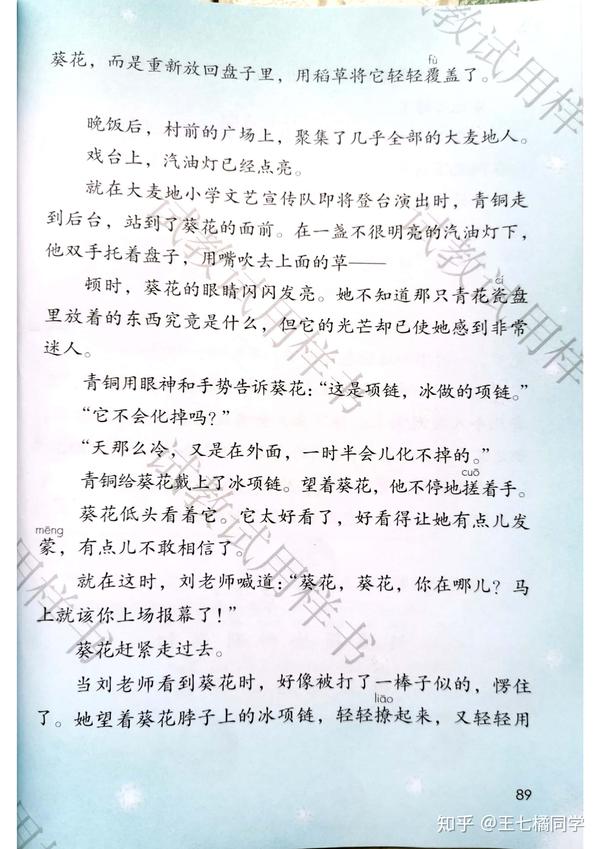 fù
葵花，而是重新放回盘子里，用稻草将它轻轻覆盖了。
晚饭后，村前的广场上，聚集了几乎全部的大麦地人。
戏台上，汽油灯已经点亮。
就在大麦地小学文艺宣传队即将登台演出时，青铜走
到后台，站到了葵花的面前。在一盏不很明亮的汽油灯下，
他双手托着盘子，用嘴吹去上面的草——
cí
顿时，葵花的眼睛闪闪发亮。她不知道那只青花瓷盘
里放着的东西究竟是什么，但它的光芒却已使她感到非常
迷人。
青铜用眼神和手势告诉葵花：“这是项链，冰做的项链。”
“它不会化掉吗？”
“天那么冷，又是在外面，一时半会儿化不掉的。”
cuō
青铜给葵花戴上了冰项链。望着葵花，他不停地搓着手。
葵花低头看着它。它太好看了，好看得让她有点儿发
mēng
蒙，有点儿不敢相信了。
就在这时，刘老师喊道：“葵花，葵花，你在哪儿？马
上就该你上场报幕了！”
葵花赶紧走过去。
当刘老师看到葵花时，好像被打了一棒子似的，愣住
liāo
了。她望着葵花脖子上的冰项链，轻轻撩起来，又轻轻用
89
知乎 @王七橘同学
试教试用样书
试教试用样
试教试用样书
试教试用样
试教试用样书
用样书